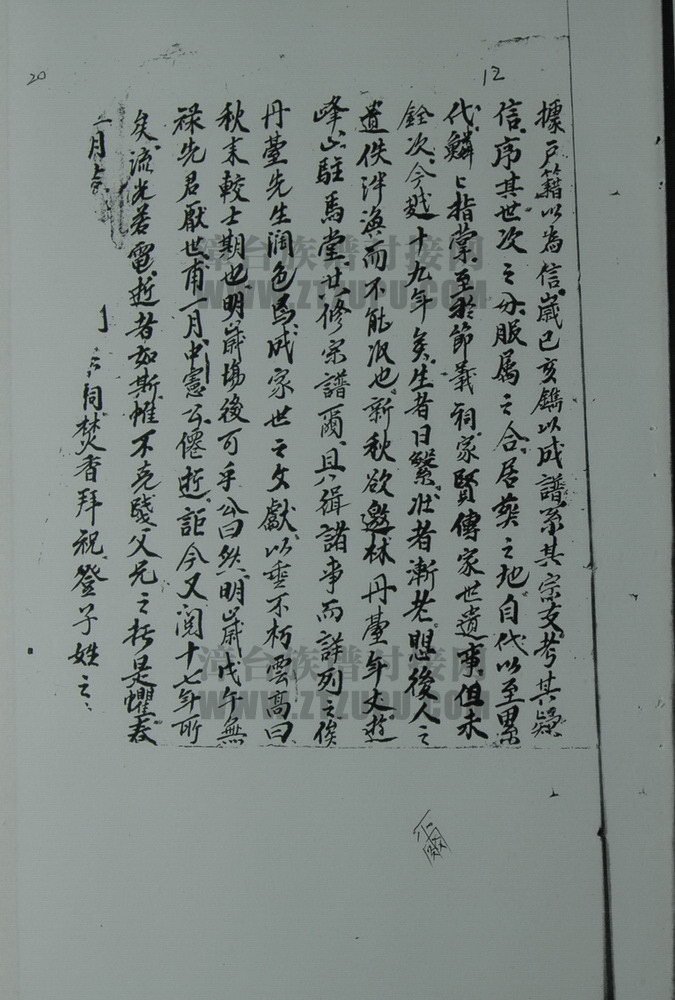 12
據戶籍以為信歲已亥鐫以成譜系其宗支考其疑
信序其世次之分服屬之合居葬之地自代以至累
代鱗々指掌至於節義祠家賢傳家世遺事但未
銓次今越十九年矣生者日繁壯者漸老思後人之
遺佚泮渙而不能收也新秋欲邀林丹臺年丈遊
峰山駐馬堂共修宗譜爾具緝諸事而詳列之俟
丹臺先生润色焉成家世之文獻以垂不朽雲高曰
秋末較士期也明歲場後可乎公曰然明歲戊午無
祿先君厭世甫一月中憲公僊逝詎今又閱十七年所
矣流光若電逝者如斯惟不克踐父兄之托是懼春
二月
同焚香拜祝登子姓之
20
漳台族谱对接网
WWW.ZTZUPU.COM
漳台族谱对接网
WWW.ZTZUPU.COM